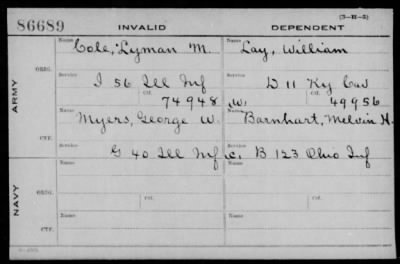 (3-H-5)
86689 INVALID DEPENDENT
Name Name
Cole, Lyman M. Lay, William
ORIG.
Service Service
I 56 Ill Inf D 11 Ky Cav
Ctf. Ctf.
74948 W. 49956
ARMY
Name Name
Myers, George W. Barnhart, Melvin H.
CTF.
Service Service
G 40 Ill Inf C. B 123 Ohio Inf
Name Name
NAVY
ORIG.
Service Ctf. Service Ctf.
Name Name
CTF.